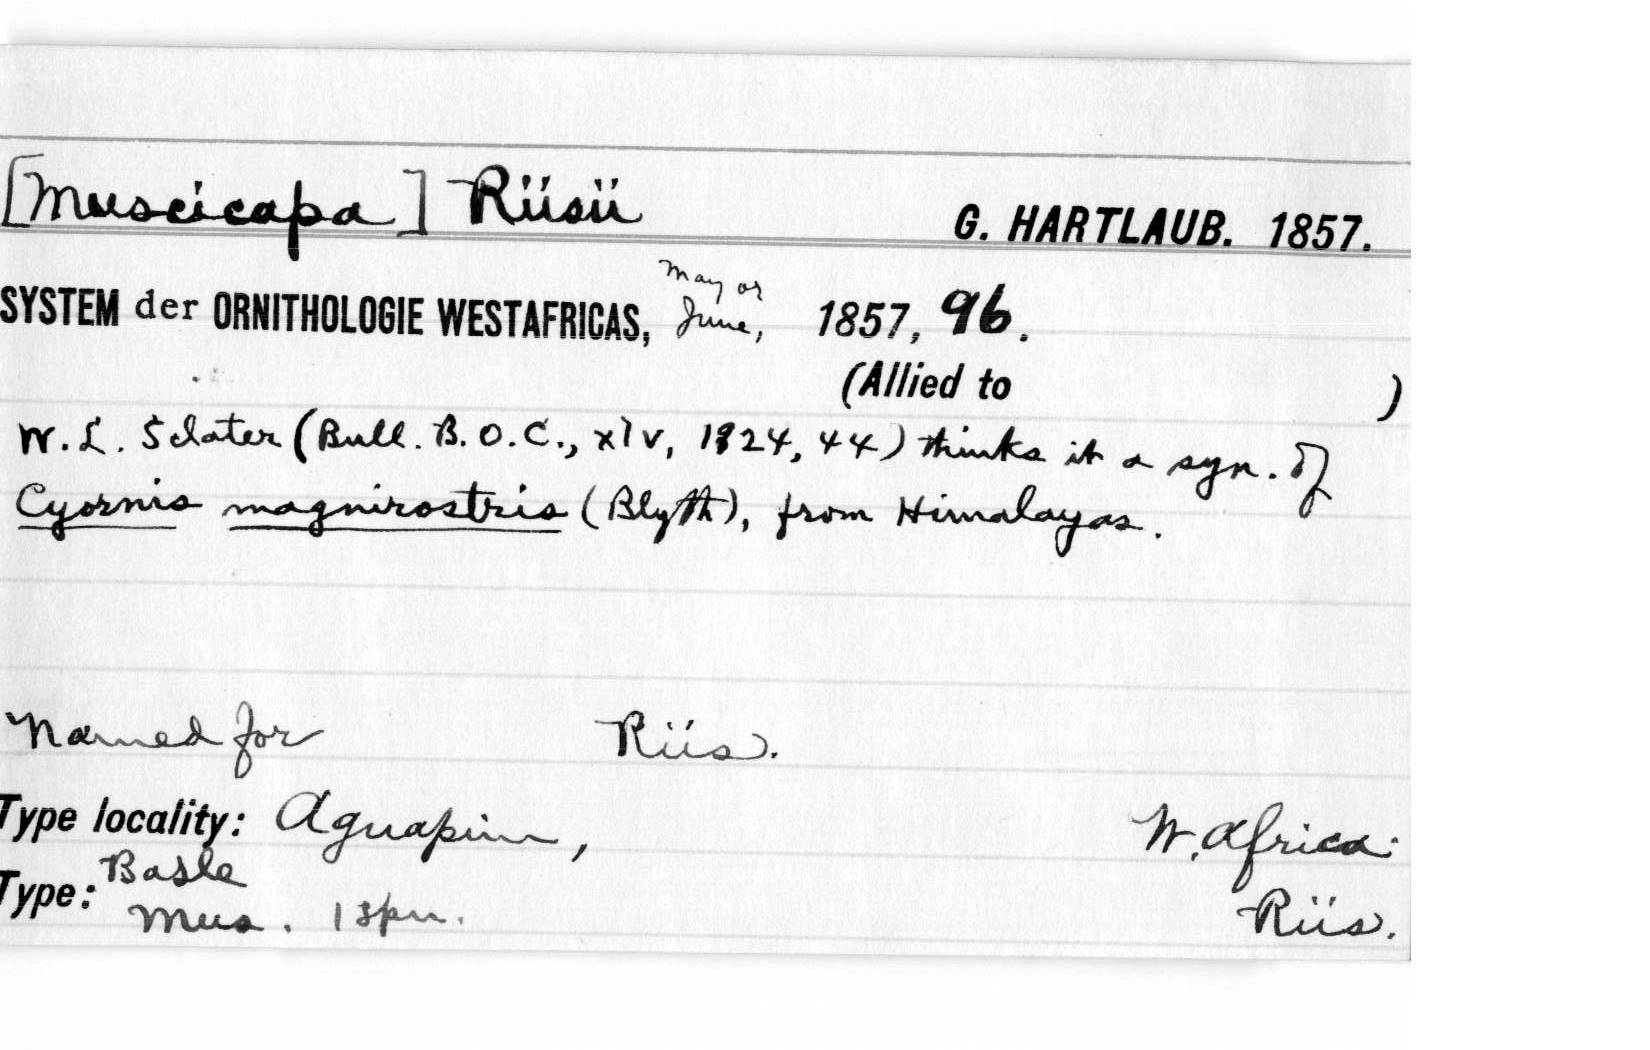 [Muscicapa] Riisii
G. HARTLAUB. 1857.
SYSTEM der ORNITHOLOGIE WESTAFRICAS, May or June, 1857, 96.
(Allied to )
W. L. Sclater (Bull. B. O. C., xlv, 1924, 44) thinks it a syn. of
Cyornis magnirostris (Blyth), from Himalayas.
Named for Riis.
Type locality: Aguapim, W. Africa.
Type: Basle Mus. 1 spn. Riis.